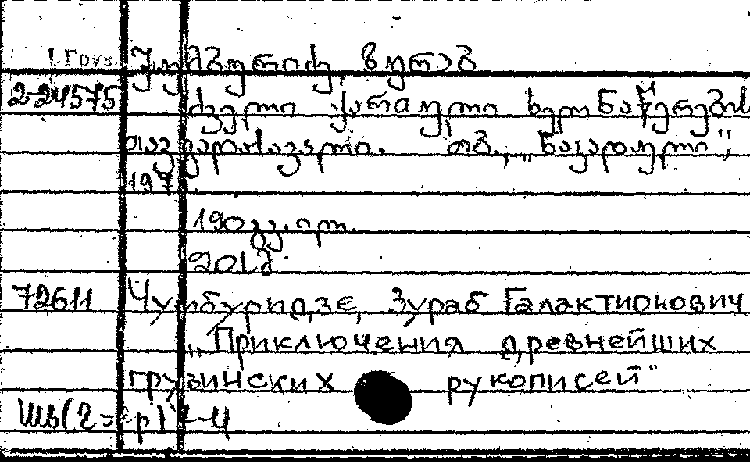 Груз ჭუმბურიძე, ზურაბ
2-24575 ძველი ქართული ხელნაწერების
თავგადასავალი. თბ., „ნაკადული",
197
190 გვ. ილ.
Чумбуридзе, Зураб Галактионович
72611
„Приключения древнейших
грузинских рукописей"